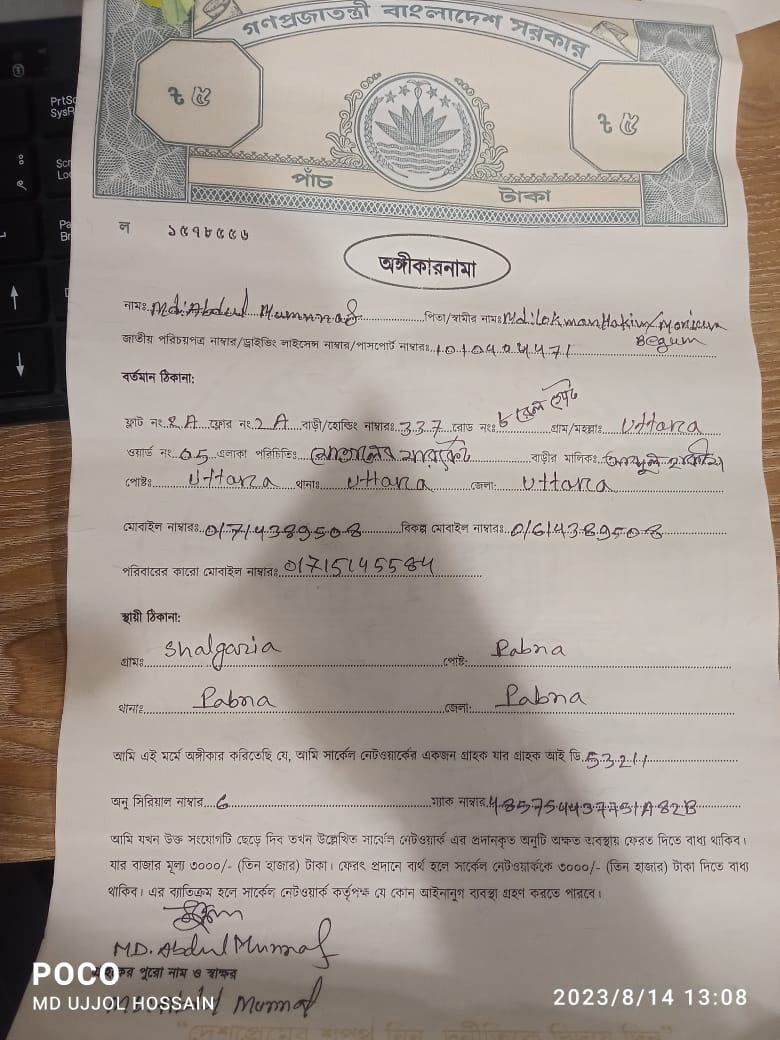 PrtSc
SysR
গণপ্রজাতন্ত্রী বাংলাদেশ সরকার
৳ ৫
৳ ৫
পাঁচ
টাকা
ল ১৫৭৮৫৫৬
অঙ্গীকারনামা
নামঃ Md: Abdul Munnaf পিতা/স্বামীর নামঃ Md: Lokman Hakim/Moricom
Begum
জাতীয় পরিচয়পত্র নাম্বার/ড্রাইভিং লাইসেন্স নাম্বার/পাসপোর্ট নাম্বারঃ
বর্তমান ঠিকানা:
ফ্লাট নং: 2A ফ্লোর নং: 2A বাড়ী/হোল্ডিং নাম্বারঃ 337 রোড নংঃ ৮ রেল গেট গ্রাম/মহল্লাঃ Uttara
ওয়ার্ড নং: 05 এলাকা পরিচিতিঃ বাড়ীর মালিকঃ
পোষ্টঃ Uttara থানাঃ Uttara জেলা: Uttara
মোবাইল নাম্বারঃ 01714389508 বিকল্প মোবাইল নাম্বারঃ 01614389508
পরিবারের কারো মোবাইল নাম্বারঃ 01715145584
স্থায়ী ঠিকানা:
গ্রামঃ Shalgaria পোষ্ট: Pabna
থানাঃ Pabna জেলা: Pabna
আমি এই মর্মে অঙ্গীকার করিতেছি যে, আমি সার্কেল নেটওয়ার্কের একজন গ্রাহক যার গ্রাহক আই ডি: 53211
অনু সিরিয়াল নাম্বার: 6 ম্যাক নাম্বার: 485754437751A82B
আমি যখন উক্ত সংযোগটি ছেড়ে দিব তখন উল্লেখিত সার্কেল নেটওয়ার্ক এর প্রদানকৃত অনুটি অক্ষত অবস্থায় ফেরত দিতে বাধ্য থাকিব।
যার বাজার মূল্য ৩০০০/- (তিন হাজার) টাকা। ফেরৎ প্রদানে ব্যর্থ হলে সার্কেল নেটওয়ার্ককে ৩০০০/- (তিন হাজার) টাকা দিতে বাধ্য
থাকিব। এর ব্যতিক্রম হলে সার্কেল নেটওয়ার্ক কর্তৃপক্ষ যে কোন আইনানুগ ব্যবস্থা গ্রহণ করতে পারবে।
MD. Abdul Munnaf
গ্রাহকের পুরো নাম ও স্বাক্ষর
POCO
MD UJJOL HOSSAIN
2023/8/14 13:08
"দেশপ্রেমের শপথ নিন, দুর্নীতিকে বিদায় দিন"